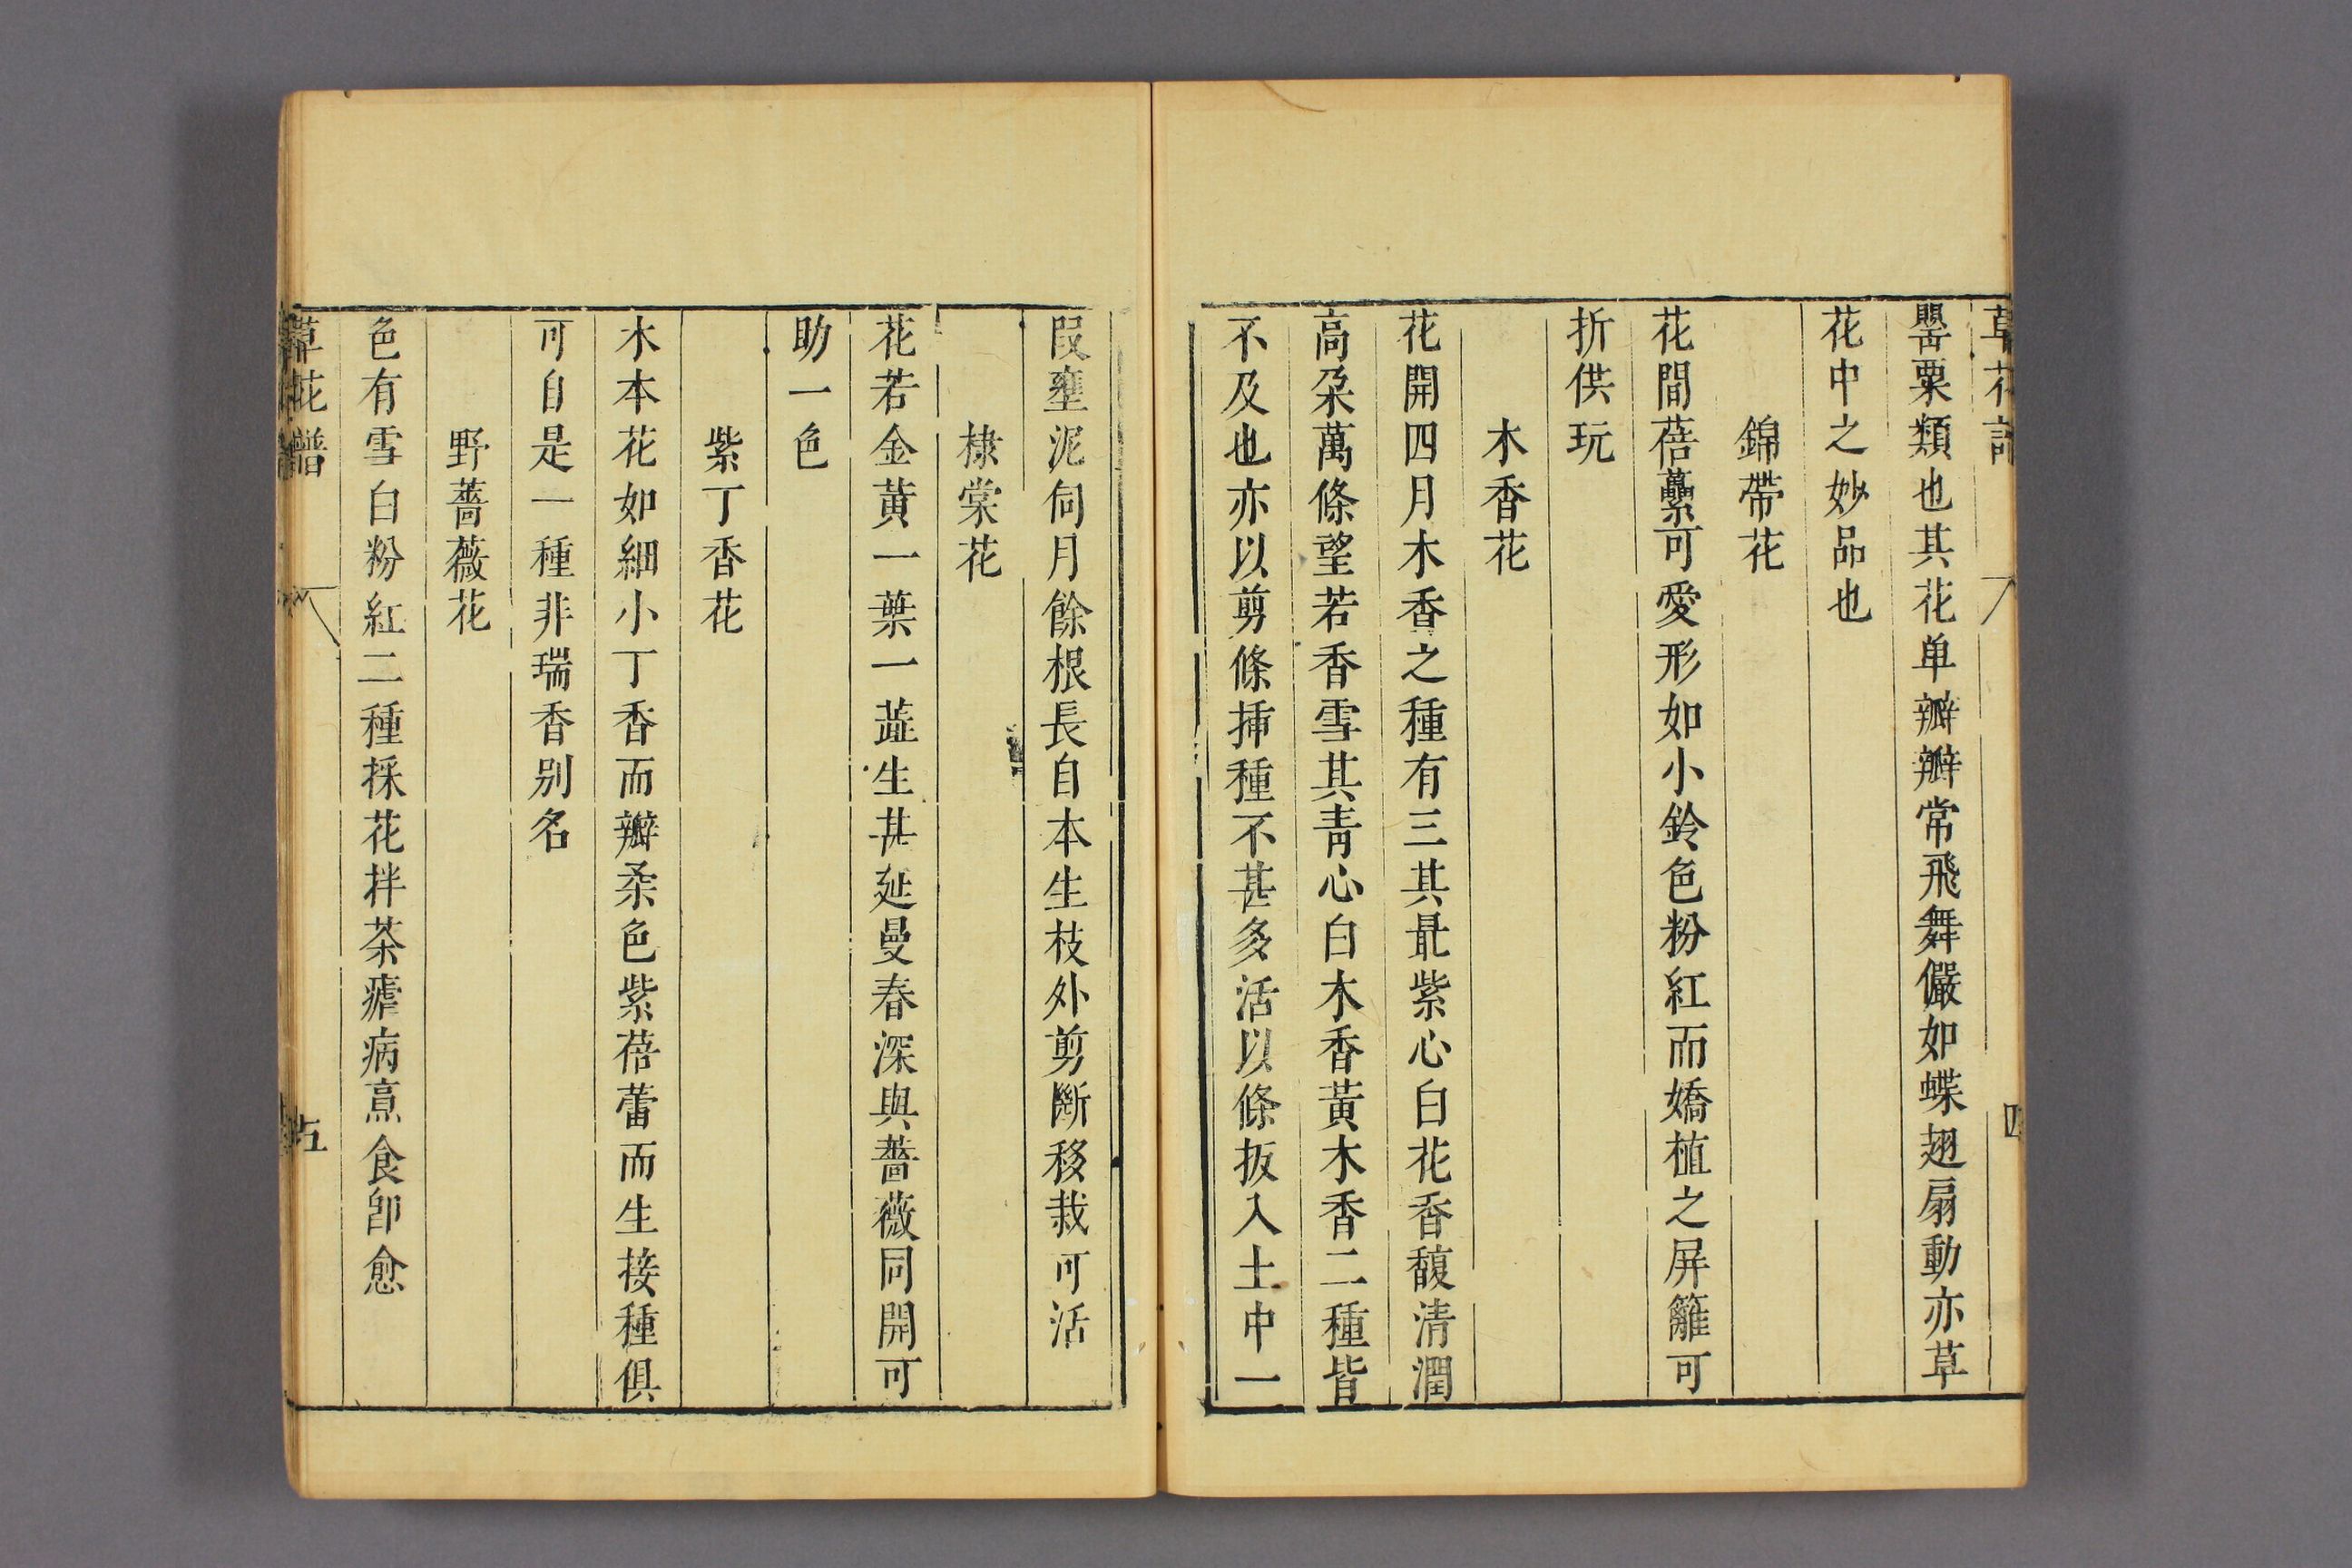 草花譜
四
罌粟類也其花单瓣瓣常飛舞儼如蝶翅扇動亦草
花中之妙品也
錦帶花
花間蓓蘽可愛形如小鈴色粉紅而嬌植之屏籬可
折供玩
木香花
花開四月木香之種有三其最紫心白花香馥清潤
高朶萬條望若香雪其青心白木香黃木香二種皆
不及也亦以剪條揷種不甚多活以條扳入土中一
段壅泥伺月餘根長自本生枝外剪斷移栽可活
棣棠花
花若金黄一葉一蕋生甚延曼春深與薔薇同開可
助一色
紫丁香花
木本花如細小丁香而瓣柔色紫蓓蕾而生接種俱
可自是一種非瑞香别名
野薔薇花
色有雪白粉紅二種採花拌茶瘧病烹食卽愈
草花譜
五